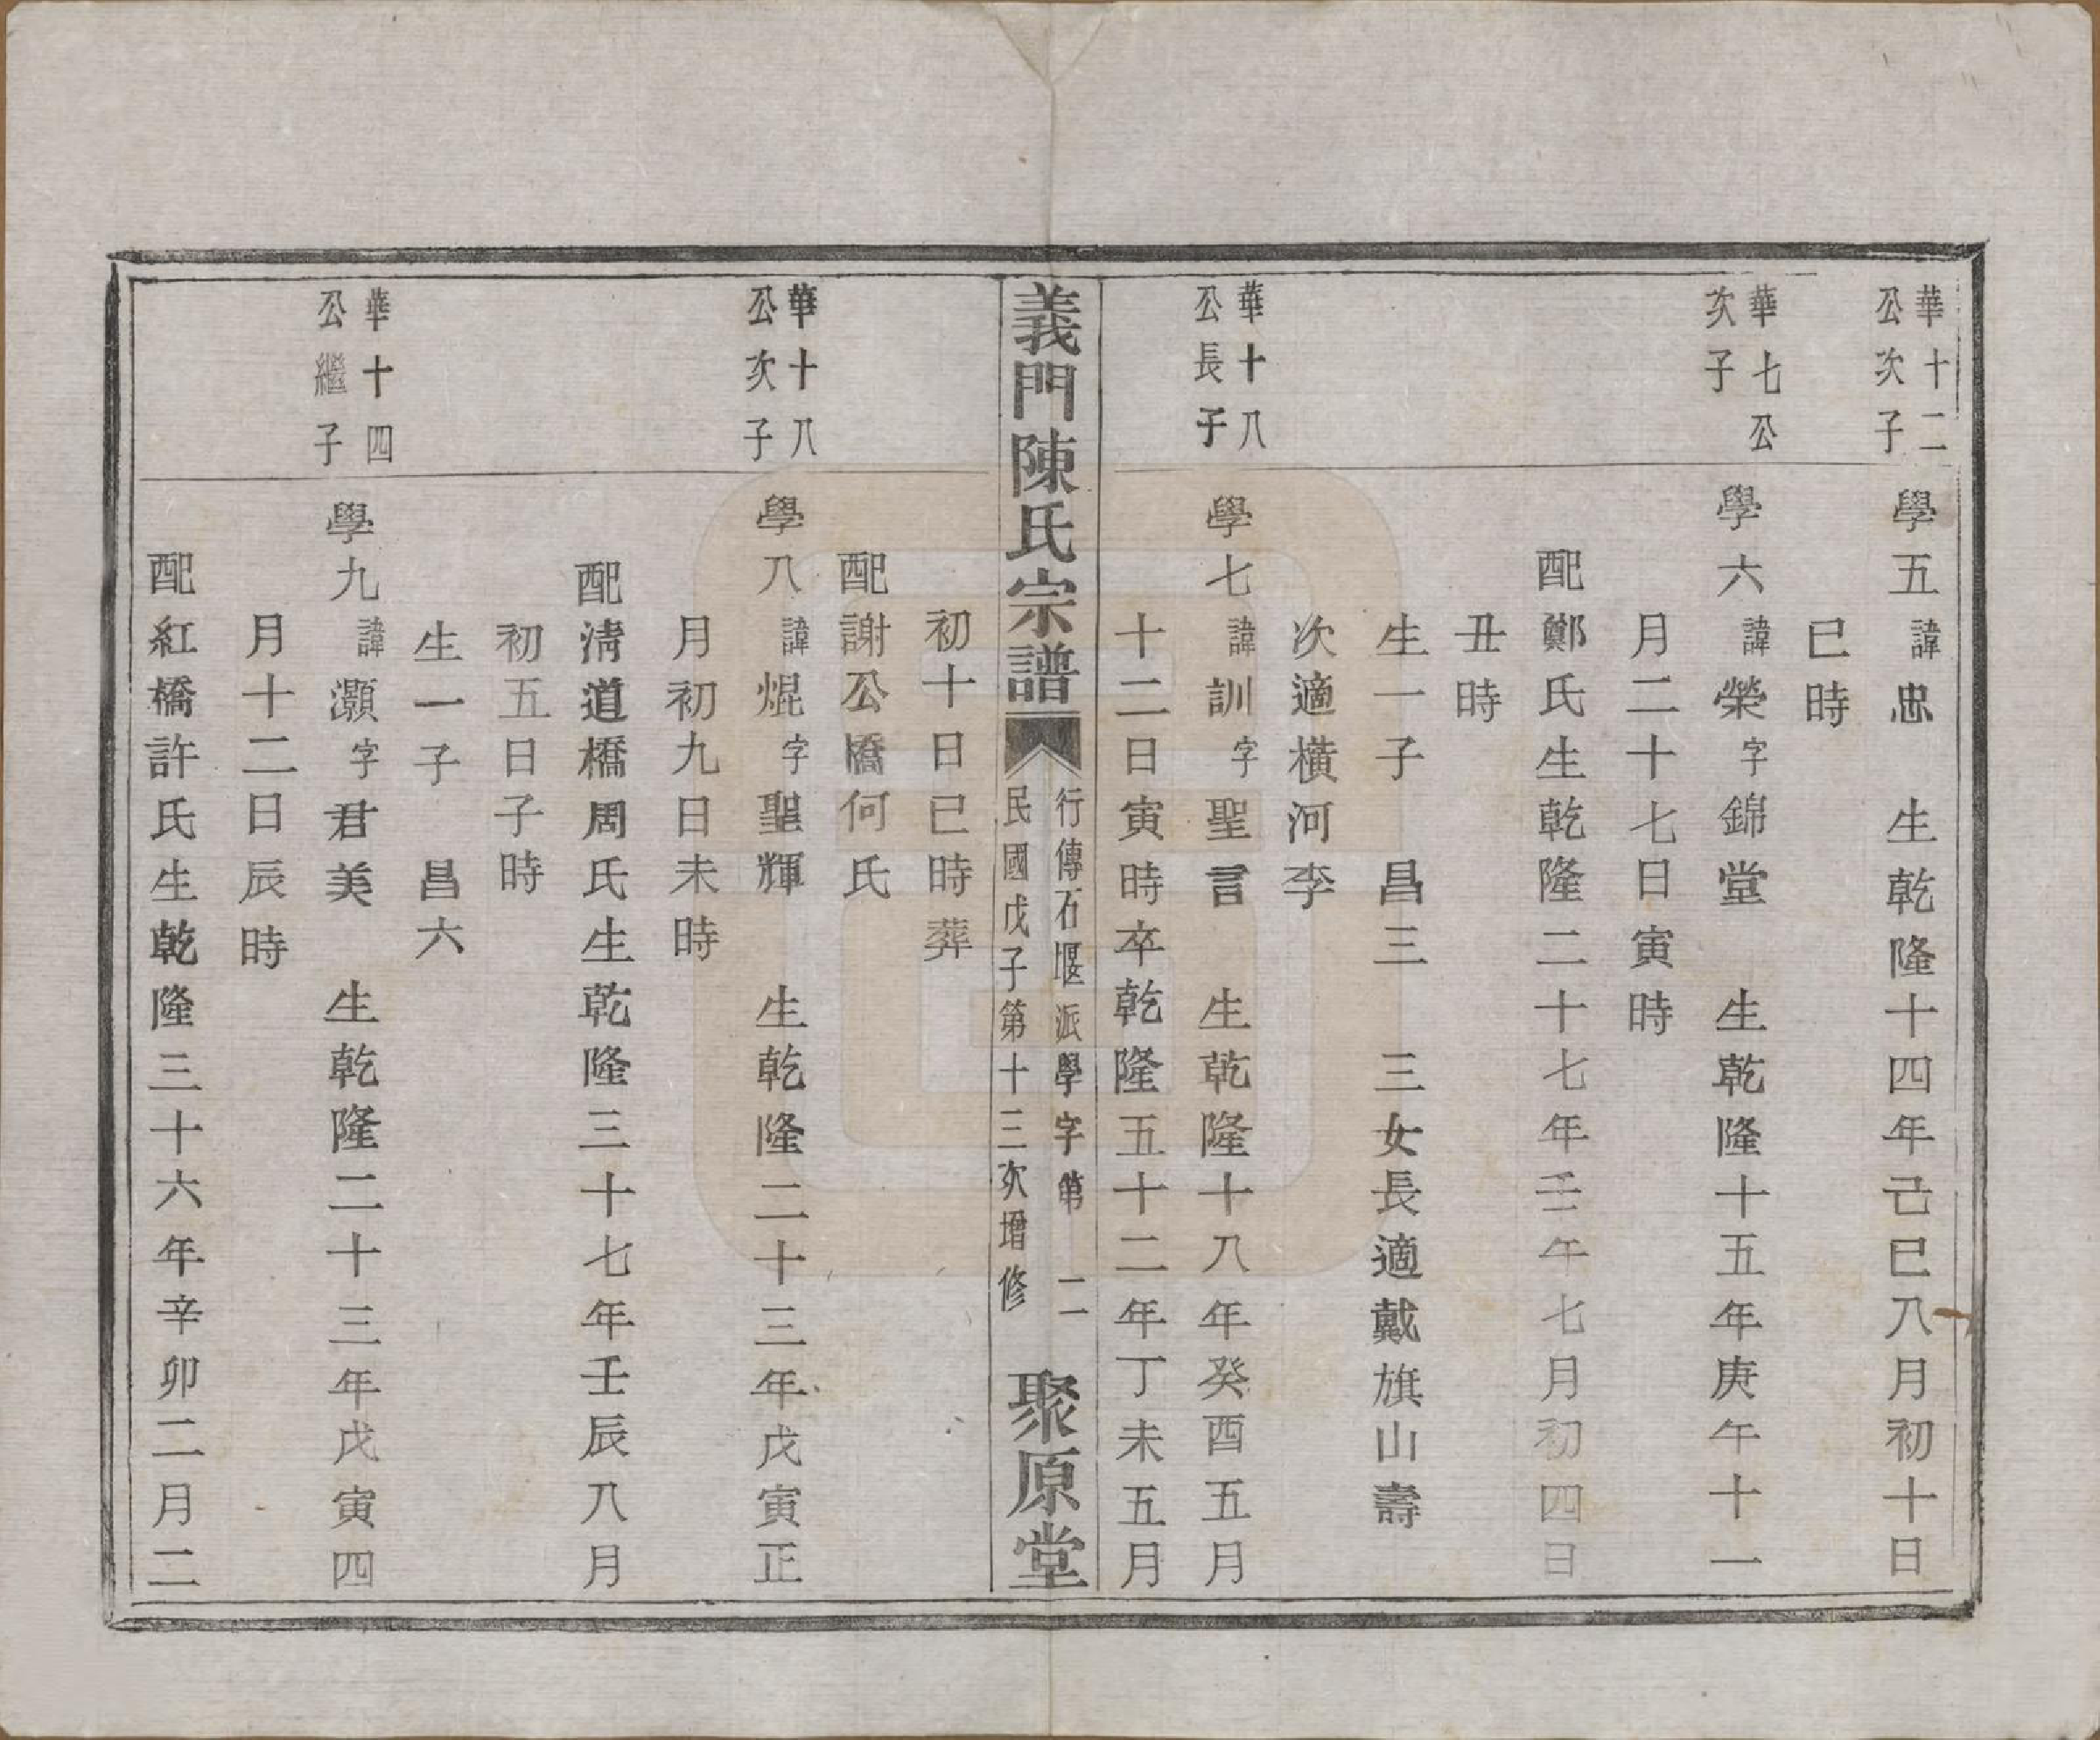 華十二
公次子
學五諱忠　生乾隆十四年己巳八月初十日
巳時
華七公
次子
學六諱榮字錦堂　生乾隆十五年庚午十一
月二十七日寅時
配鄭氏生乾隆二十七年壬午七月初四日
丑時
生一子　昌三　三女長適戴旗山壽
次適橫河李
華十八
公長子
學七諱訓字聖言　生乾隆十八年癸酉五月
十二日寅時卒乾隆五十二年丁未五月
義門陳氏宗譜
行傳石堰派學字第　二
民國戊子第十三次增修
聚原堂
初十日巳時葬
配謝公橋何氏
華十八
公次子
學八諱焜字聖輝　生乾隆二十三年戊寅正
月初九日未時
配清道橋周氏生乾隆三十七年壬辰八月
初五日子時
生一子　昌六
華十四
公繼子
學九諱灝字君美　生乾隆二十三年戊寅四
月十二日辰時
配紅橋許氏生乾隆三十六年辛卯二月二